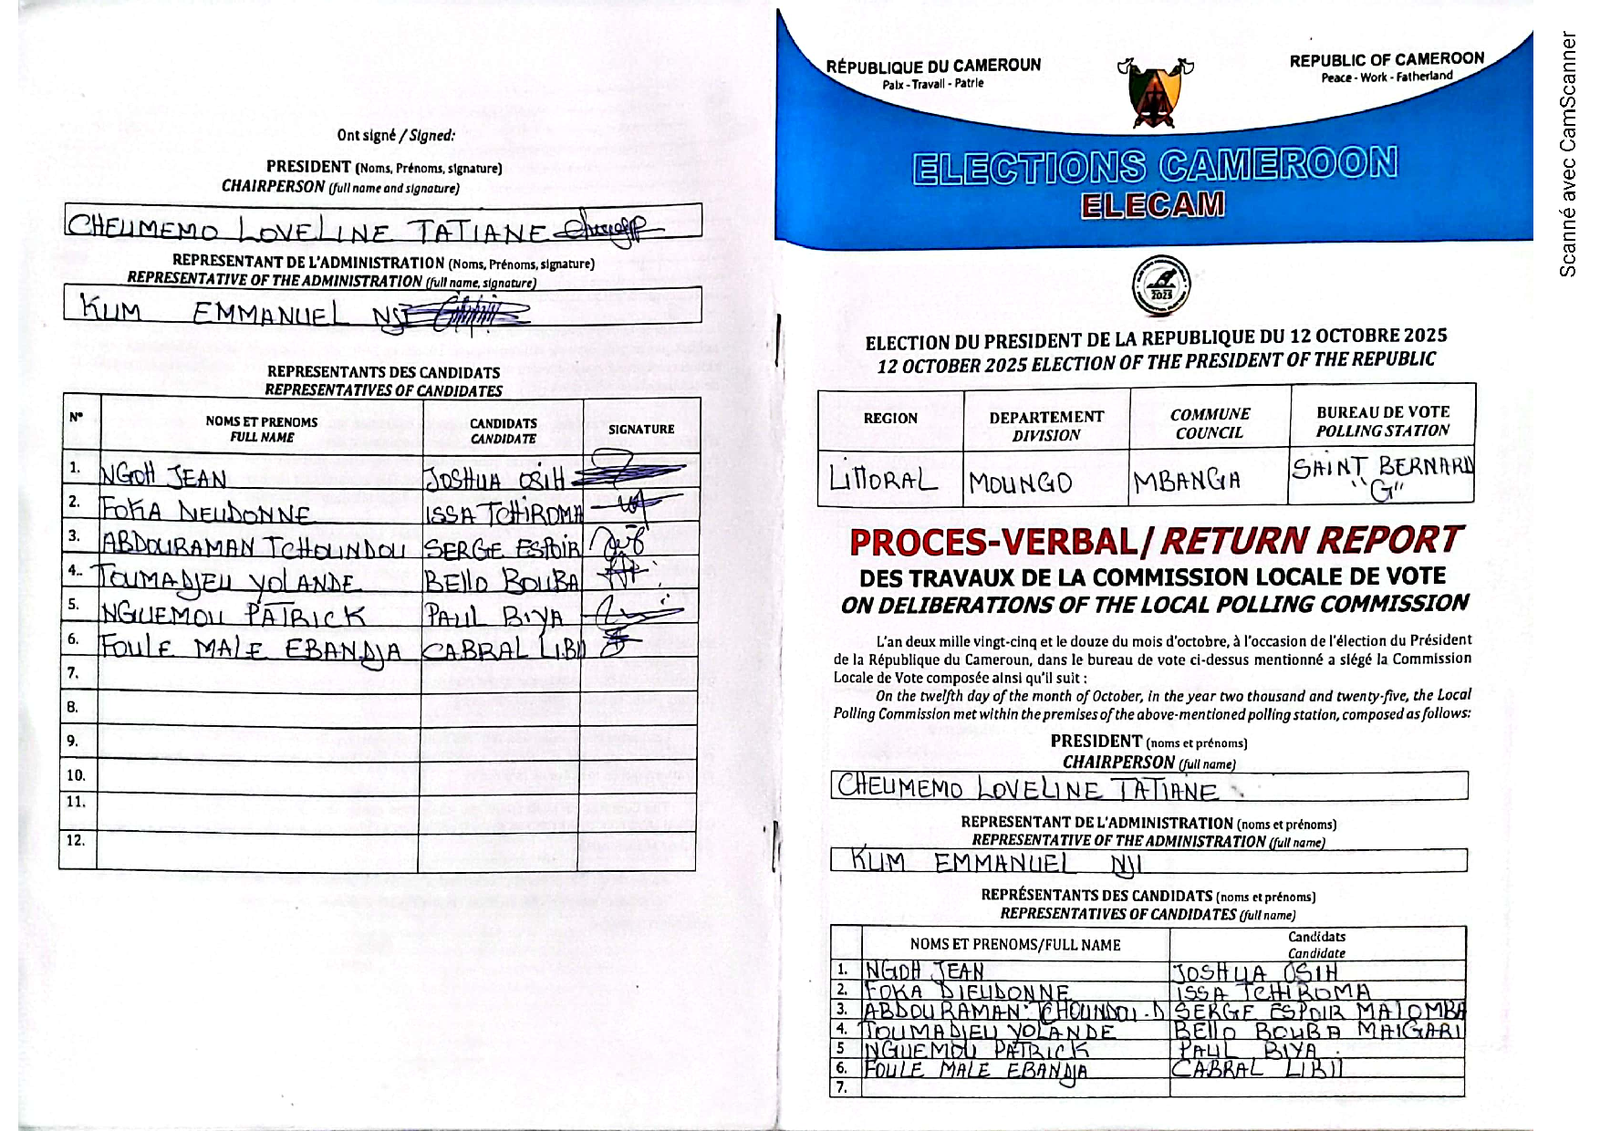 Ont signé / Signed:
PRESIDENT (Noms, Prénoms, signature)
CHAIRPERSON (full name and signature)
CHEUMEMO LOVELINE TATIANE
REPRESENTANT DE L'ADMINISTRATION (Noms, Prénoms, signature)
REPRESENTATIVE OF THE ADMINISTRATION (full name, signature)
KUM EMMANUEL NJI
REPRESENTANTS DES CANDIDATS
REPRESENTATIVES OF CANDIDATES
N° NOMS ET PRENOMS FULL NAME CANDIDATS CANDIDATE SIGNATURE
1. NGOH JEAN JOSHUA OSIH
2. FOKA DIEUDONNE ISSA TCHIROMA
3. ABDOURAMAN TCHOUNDOU SERGE ESPOIR
4. TOUMADJEU YOLANDE BELLO BOUBA
5. NGUEMOU PATRICK PAUL BIYA
6. FOULE MALE EBANDJA CABRAL LIBII
7.
8.
9.
10.
11.
12.
RÉPUBLIQUE DU CAMEROUN
Paix - Travail - Patrie
REPUBLIC OF CAMEROON
Peace - Work - Fatherland
ELECTIONS CAMEROON
ELECAM
2025
ELECTION DU PRESIDENT DE LA REPUBLIQUE DU 12 OCTOBRE 2025
12 OCTOBER 2025 ELECTION OF THE PRESIDENT OF THE REPUBLIC
REGION DEPARTEMENT DIVISION COMMUNE COUNCIL BUREAU DE VOTE POLLING STATION
LITTORAL MOUNGO MBANGA SAINT BERNARD "G"
PROCES-VERBAL/ RETURN REPORT
DES TRAVAUX DE LA COMMISSION LOCALE DE VOTE
ON DELIBERATIONS OF THE LOCAL POLLING COMMISSION
L'an deux mille vingt-cinq et le douze du mois d'octobre, à l'occasion de l'élection du Président
de la République du Cameroun, dans le bureau de vote ci-dessus mentionné a siégé la Commission
Locale de Vote composée ainsi qu'il suit :
On the twelfth day of the month of October, in the year two thousand and twenty-five, the Local
Polling Commission met within the premises of the above-mentioned polling station, composed as follows:
PRESIDENT (noms et prénoms)
CHAIRPERSON (full name)
CHEUMEMO LOVELINE TATIANE
REPRESENTANT DE L'ADMINISTRATION (noms et prénoms)
REPRESENTATIVE OF THE ADMINISTRATION (full name)
KUM EMMANUEL NJI
REPRÉSENTANTS DES CANDIDATS (noms et prénoms)
REPRESENTATIVES OF CANDIDATES (full name)
NOMS ET PRENOMS/FULL NAME Candidats Candidate
1. NGOH JEAN JOSHUA OSIH
2. FOKA DIEUDONNE ISSA TCHIROMA
3. ABDOURAMAN TCHOUNDOU . D SERGE ESPOIR MATOMBA
4. TOUMADJEU YOLANDE BELLO BOUBA MAIGARI
5 NGUEMOU PATRICK PAUL BIYA
6. FOULE MALE EBANDJA CABRAL LIBII
7.
Scanné avec CamScanner